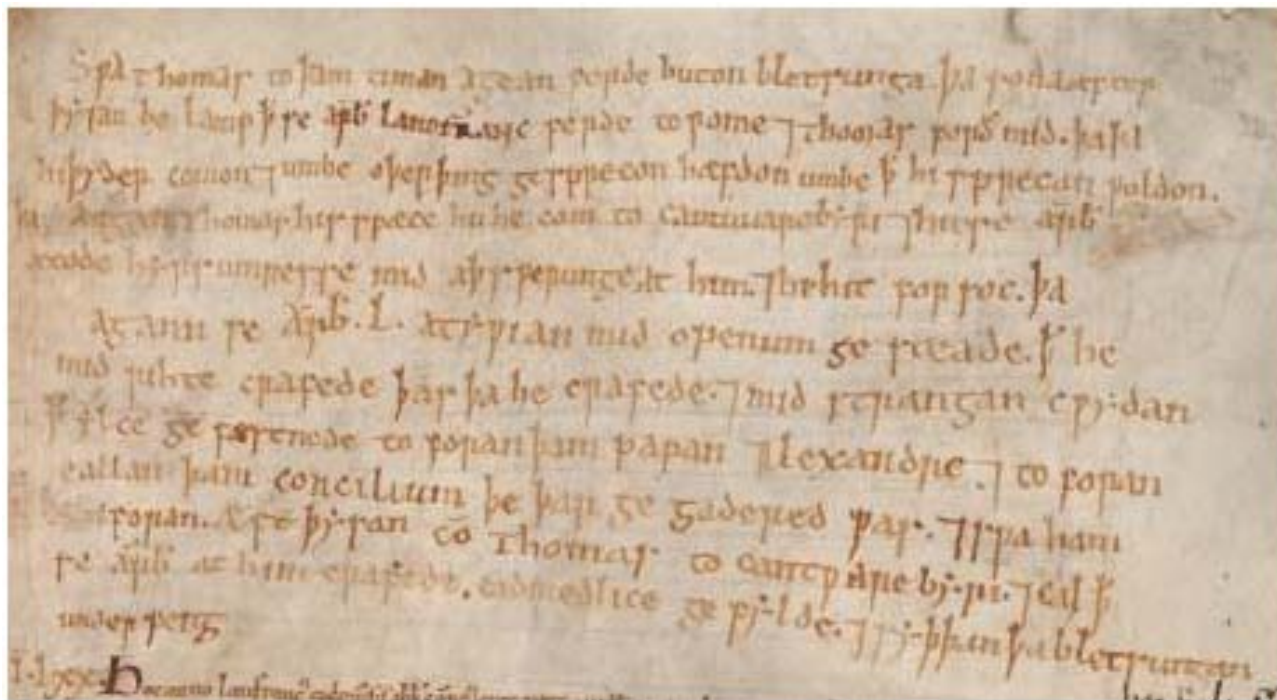 Sƿa thomas to þam timan agean ferde buton bletsunga. þa sona æfter
þysan be lamp ꝥ se arb̄ landfranc ferde to rome ⁊ thomas forð mid. þa hi
hi þyder comon ⁊ umbe oþer þing gesprecon hæfdon umbe ꝥ hi sprecan ƿoldon.
þa angan thomas his spæce hu he com to cantuuarebyri ⁊ hu se arb̄
axode hyrsumnesse mid aþsƿerunge at him. ⁊ he hit forsoc. þa
agann se arb̄. L. atyƿian mid openum ge sceade. ꝥ he
mid rihte crafede þas þa he crafede. ⁊ mid strangan cƿydan
ꝥ ylce ge fæstnode to foran þam papan Alexandre. ⁊ to foran
eallan þam concilium þe þar ge gadered ƿas. ⁊ sƿa ham
foran. Æfte þysan cō Thomas to cantƿarebyri. ⁊ eal ꝥ
se arb̄ at him crafede. eadmedlice ge fylde. ⁊ syþþan þa bletsungan
underfeng
Hoc anno